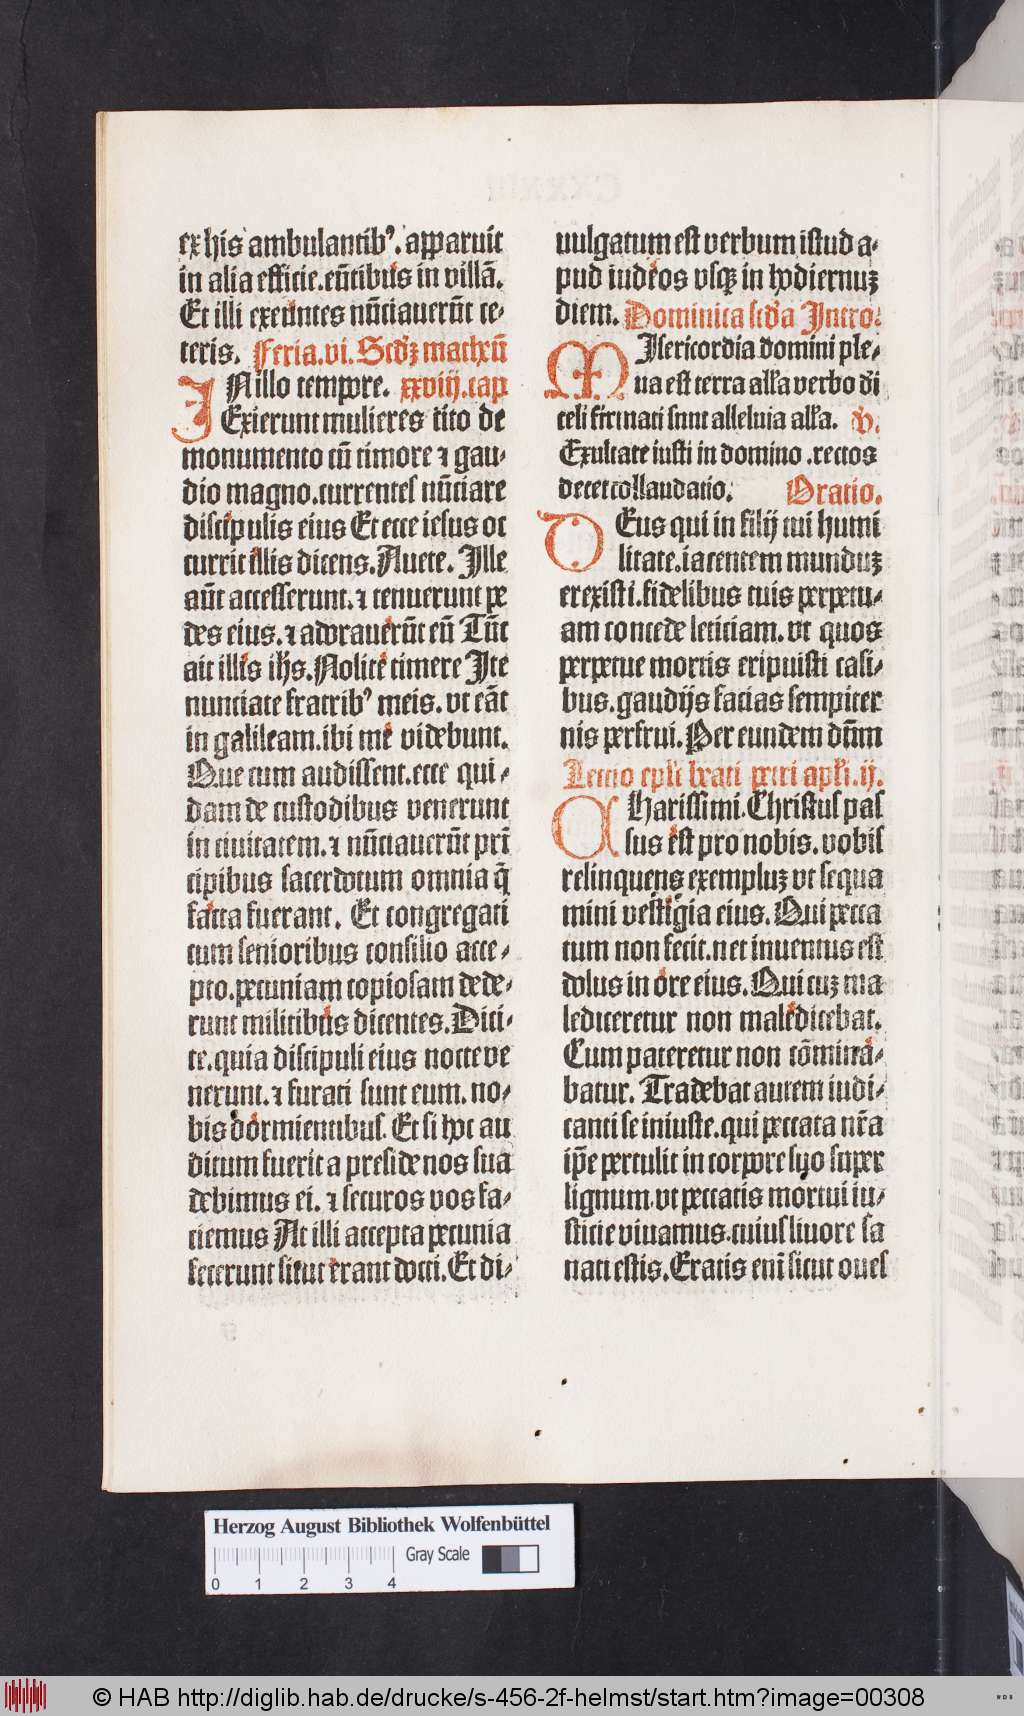 ex his ambulantibꝰ. apparuit
in alia efficie. eūtibus in villā.
Et illi exeuntes nūciauerūt ce-
teris. Feria .vi. Scdꝫ matheū
IN illo tempore. xxviij. cap
Exierunt mulieres cito de
monumento cū timore ⁊ gau-
dio magno. currentes nūciare
discipulis eius Et ecce iesus oc
currit illis dicens. Auete. Ille
aūt accesserunt. ⁊ tenuerunt pe
des eius. ⁊ adorauerūt eū Tūc
ait illis ihs. Nolite timere Ite
nunciate fratribꝰ meis. vt eāt
in galileam. ibi me videbunt.
Que cum audissent. ecce qui-
dam de custodibus venerunt
in ciuitatem. ⁊ nūciauerūt prī
cipibus sacerdotum omnia q̄
facta fuerant. Et congregati
cum senioribus consilio acce-
pto. pecuniam copiosam dede-
runt militibus dicentes. Dici-
te. quia discipuli eius nocte ve
nerunt. ⁊ furati sunt eum. no-
bis dormientibus. Et si hoc au
ditum fuerit a preside nos sua
debimus ei. ⁊ securos vos fa-
ciemus At illi accepta pecunia
fecerunt sicut erant docti. Et di-
uulgatum est verbum istud a-
pud iudeos vsqꝫ in hodiernuꝫ
diem. Dominica scd'a Intro.
MIsericordia domini ple-
na est terra all'a verbo dī
celi firmati sunt alleluia all'a. v.
Exultate iusti in domino. rectos
decet collaudatio. Oratio.
DEus qui in filij tui humi
litate. iacentem munduꝫ
erexisti. fidelibus tuis perpetu-
am concede leticiam. vt quos
perpetue mortis eripuisti casi-
bus. gaudijs facias sempiter
nis perfrui. Per eundem dūm
Lectio epl'i beati petri apl'i .ij.
CHarissimi. Christus pas
sus est pro nobis. vobis
relinquens exempluꝫ vt sequa
mini vestigia eius. Qui pecca
tum non fecit. nec inuentus est
dolus in ore eius. Qui cuꝫ ma
lediceretur non maledicebat.
Cum pateretur non cōmina-
batur. Tradebat autem iudi-
canti se iniuste. qui peccata nr̄a
ip̄e pertulit in corpore suo super
lignum. vt peccatis mortui iu-
sticie viuamus. cuius liuore sa
nati estis. Eratis eni sicut oues
Herzog August Bibliothek Wolfenbüttel
Gray Scale
0 1 2 3 4
© HAB http://diglib.hab.de/drucke/s-456-2f-helmst/start.htm?image=00308